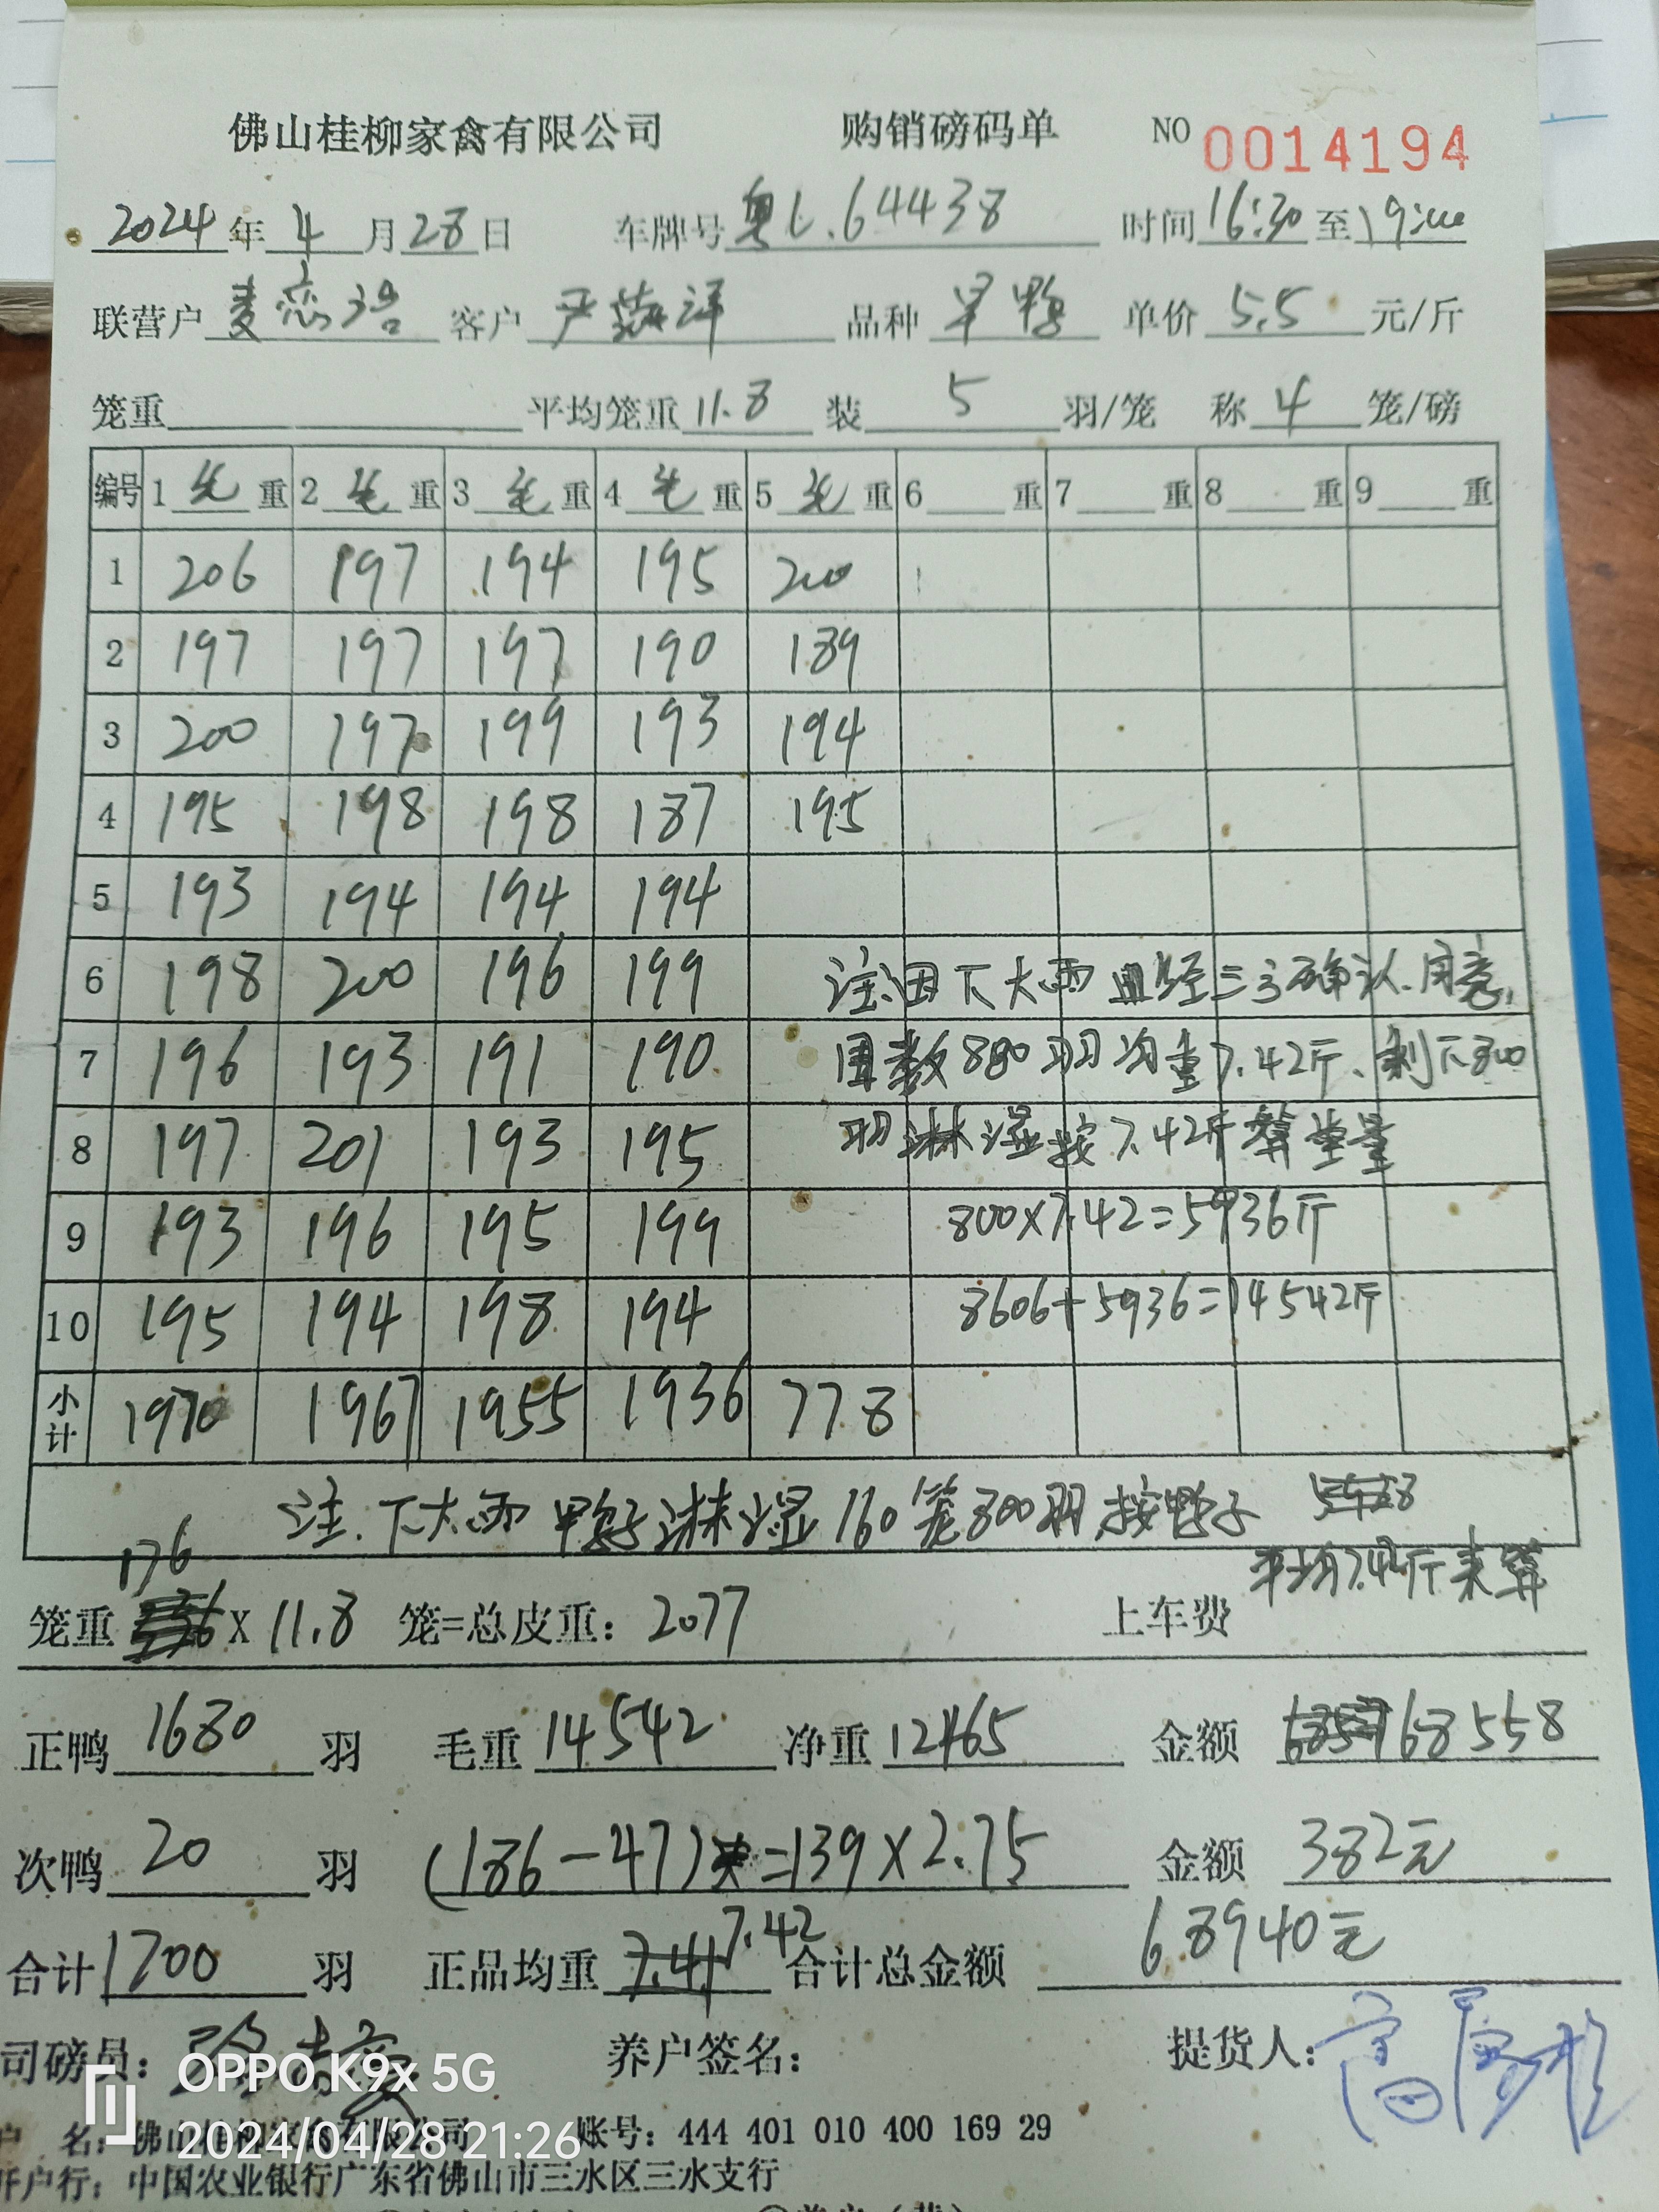 佛山桂柳家禽有限公司 购销磅码单 NO 0014194
2024年4月28日 车牌号粤L.64438 时间16:30至19:00
联营户麦 浩 客户 严 洋 品种 旱鸭 单价 5.5 元/斤
笼重 平均笼重11.8 装 5 羽/笼 称4笼/磅
编号 1毛重 2毛重 3毛重 4毛重 5毛重 6 重 7 重 8 重 9 重
1 206 197 194 195 200
2 197 197 197 190 189
3 200 197 199 193 194
4 195 198 198 187 195
5 193 194 194 194
6 198 200 196 199 注:因下大雨 经三方确认.同意,
7 196 193 191 190 数880羽均重7.42斤、剩下800
8 197 201 193 195 羽淋湿按7.42斤算重量
9 193 196 195 199 800×7.42=5936斤
10 195 194 198 194 8606+5936=14542斤
小计 1970 1967 1955 1936 778
注.下大雨 鸭子淋湿160笼800羽.按鸭子
平均7.42斤来算
176
笼重 X 11.8 笼=总皮重: 2077 上车费
正鸭1680羽 毛重14542 净重12465 金额 68558
次鸭20羽 (186-47)=139×2.75 金额 382元
合计1700羽 正品均重 7.41 7.42 合计总金额 68940元
司磅员: 养户签名: 提货人:
OPPO K9x 5G
户 名: 佛山桂柳家禽有限公司 账号: 444 401 010 400 169 29
2024/04/28 21:26
开户行: 中国农业银行广东省佛山市三水区三水支行